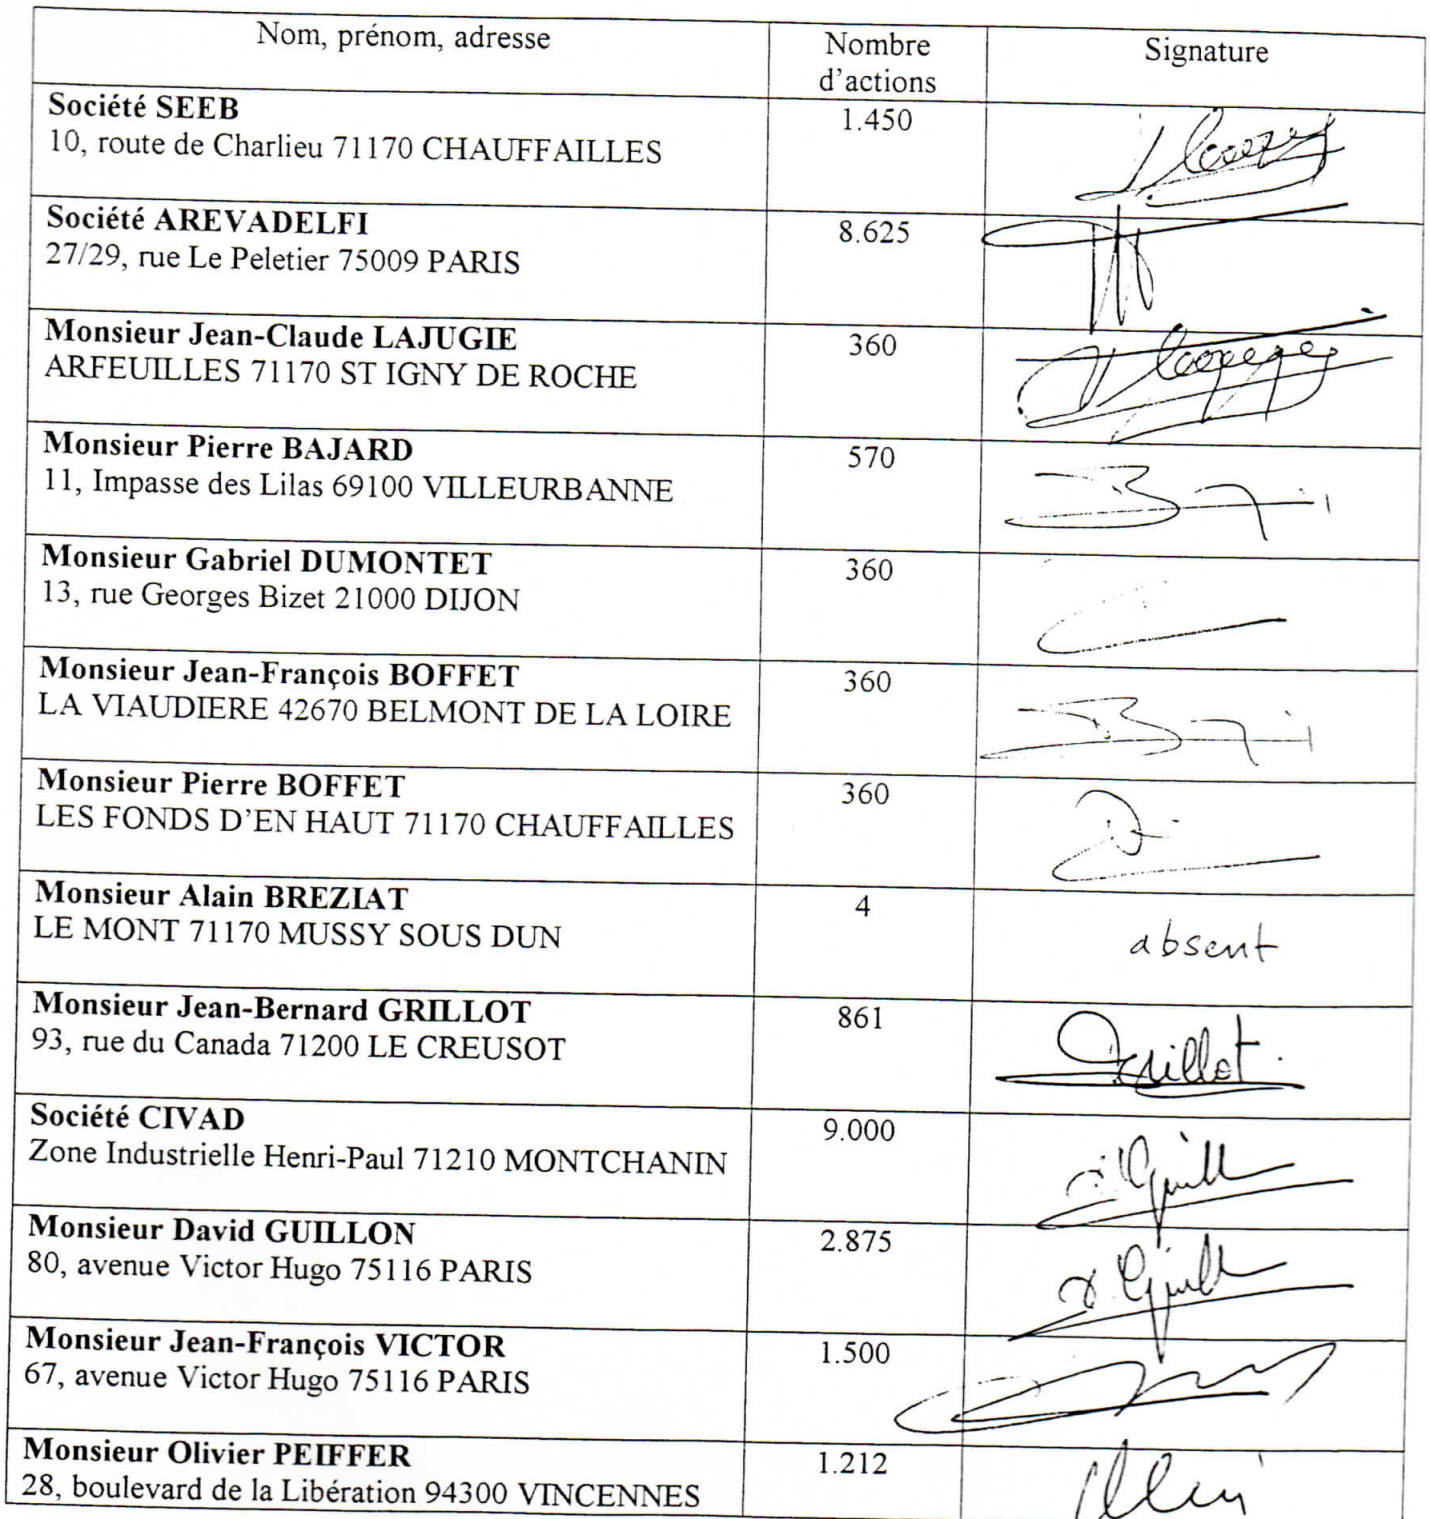 Nom, prénom, adresse
Nombre d'actions
Signature
Société SEEB
10, route de Charlieu 71170 CHAUFFAILLES
1.450
Société AREVADELFI
27/29, rue Le Peletier 75009 PARIS
8.625
Monsieur Jean-Claude LAJUGIE
ARFEUILLES 71170 ST IGNY DE ROCHE
360
Monsieur Pierre BAJARD
11, Impasse des Lilas 69100 VILLEURBANNE
570
Monsieur Gabriel DUMONTET
13, rue Georges Bizet 21000 DIJON
360
Monsieur Jean-François BOFFET
LA VIAUDIERE 42670 BELMONT DE LA LOIRE
360
Monsieur Pierre BOFFET
LES FONDS D'EN HAUT 71170 CHAUFFAILLES
360
Monsieur Alain BREZIAT
LE MONT 71170 MUSSY SOUS DUN
4
absent
Monsieur Jean-Bernard GRILLOT
93, rue du Canada 71200 LE CREUSOT
861
Société CIVAD
Zone Industrielle Henri-Paul 71210 MONTCHANIN
9.000
Monsieur David GUILLON
80, avenue Victor Hugo 75116 PARIS
2.875
Monsieur Jean-François VICTOR
67, avenue Victor Hugo 75116 PARIS
1.500
Monsieur Olivier PEIFFER
28, boulevard de la Libération 94300 VINCENNES
1.212